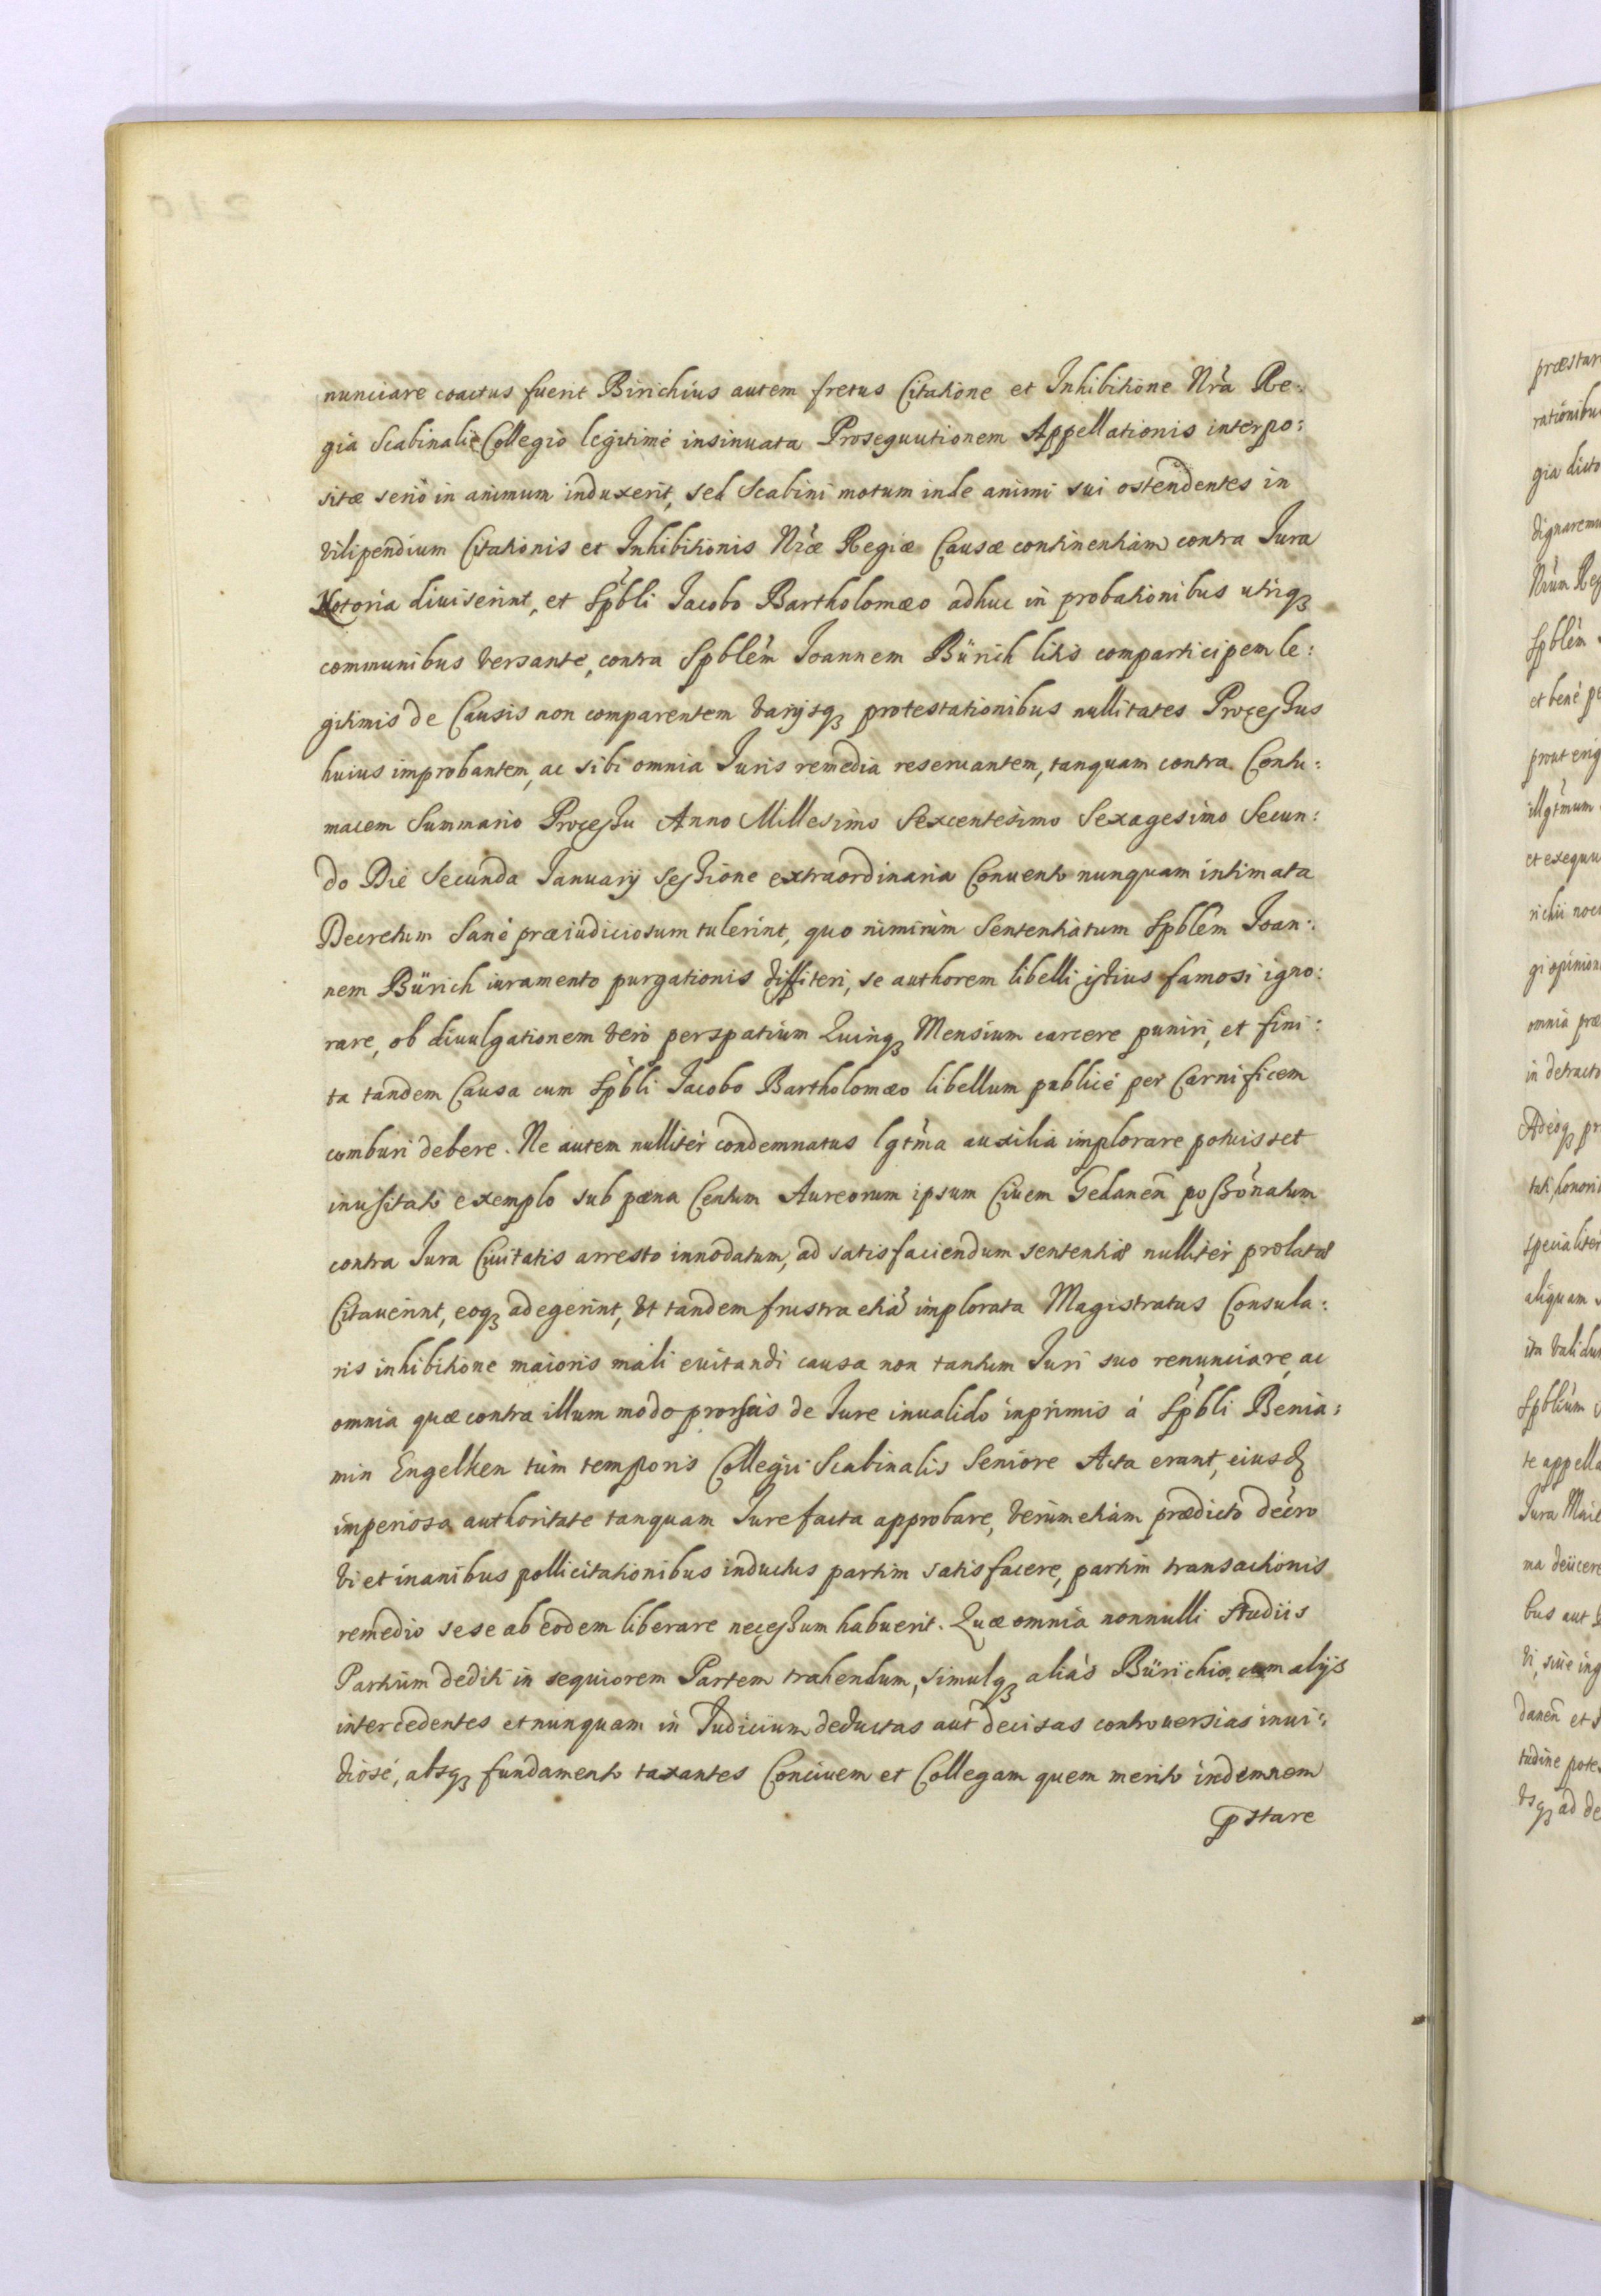 nunciare coactus fuerit Birichius autem fretus Citatione et Inhibitione Nrà Re:
gia Scabinali Collegio legitimè insinuata Prosequutionem Appellationis interpo:
sitæ seriò in animum induxerit, sed Scabini motum inde animi sui ostendentes in
vilipendium Citationis et Inhibitionis Nræ Regiæ Causæ continentiam contra Jura
Notoria diuiserint, et Spbli Jacobo Bartholomæo adhuc in probationibus utriqꝫ
communibus versante, contra Spblem Joannem Bürich litis comparticipem le:
gitimis de Causis non comparentem varijsqꝫ protestationibus nullitates Processus
huius improbantem, ac sibi omnia Juris remedia reseruantem, tanquam contra Contu:
macem Summario Processu Anno Millesimo Sexcentesimo Sexagesimo Secun:
do Die Secunda January Sessione extraordinaria Conuento nunquam intimata
Decretum Sanè præiudiciosum tulerint, quo nimirùm Sententiatum Spblem Joan:
nem Bürich iuramento purgationis diffiteri, se authorem libelli istius famosi igno:
rare, ob diuulgationem verò per spatium Quinqꝫ Mensium carcere puniri, et fini:
ta tandem Causa cum Spbli Jacobo Bartholomæo libellum publicè per Carnificem
comburi debere. Ne autem nullitèr condemnatus lgtma auxilia implorare potuisset
inusitato exemplo sub pæna Centum Aureorum ipsum Ciuem Gedanen possionatum
contra Jura Ciuitatis arresto innodatum, ad satisfaciendum sententiæ nullitèr prolatæ
Citauerint, eoqꝫ adegerint, vt tandem frustra etiã implorata Magistratus Consula:
ris inhibitione maioris mali euitandi causa non tantùm Juri suo renunciare, ac
omnia quæ contra illum modo prorsus de Jure inualido inprimis à Spbli Benia:
min Engelken tùm temporis Collegii Scabinalis Seniore Acta erant, eiusdꝫ
imperiosa authoritate tanquam Jure facta approbare, verùm etiam prædicto decro
vi et inanibus pollicitationibus inductus partim satisfacere, partim transactionis
remedio sese ab eodem liberare necessum habuerit. Quæ omnia nonnulli Studiis
Partium dediti in sequiorem Partem trahendum, simulqꝫ aliàs Bürichio cum alijs
intercedentes et nunquam in Judicium deductas aut decisas controuersias inui:
diosè, absqꝫ fundamento taxantes Conciuem et Collegam quem meritò indemnem
pstare